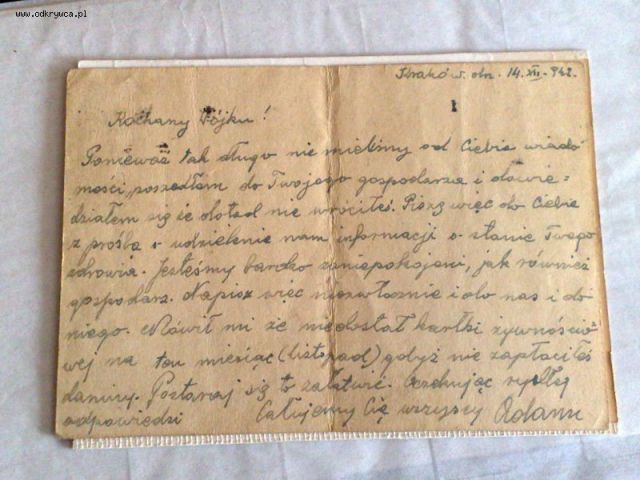 www.odkrywca.pl
Kraków. dn. 14.XII.942.
Kochany Wójku!
Ponieważ tak długo nie mieliśmy od Ciebie wiado
mości, poszedłem do Twojego gospodarza i dowie=
działem się że dotąd nie wróciłeś. Piszę więc do Ciebie
z prośbą o udzielenie nam informacji o stanie Twego
zdrowia. Jesteśmy bardzo zaniepokojeni, jak również
gospodarz. Napisz więc niezwłocznie i do nas i do
niego. Mówił mi że nie dostał kartki żywnościo=
wej na ten miesiąc (listopad) gdyż nie zapłaciłeś
daniny. Postaraj się to załatwić. Oczekując rychłej
odpowiedzi Całujemy Cię wszyscy Adam